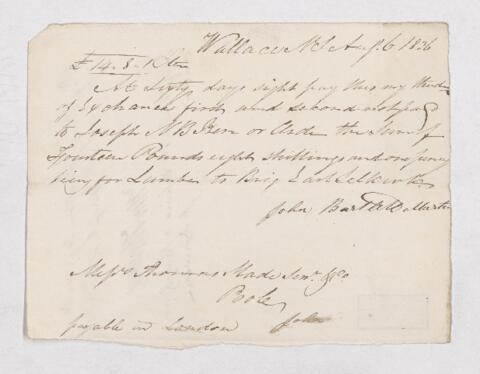 Wallace N.S Augt 6 1836
£ 14. 8. 1 Stg
At Sixty days sight pay this my third
of Exchange first and second not paid
to Joseph N B Kerr or Order the Sum of
Fourteen Pounds eight Shillings and one penny
being for Lumber to Brig Earl Selkirk
John Bartlett Master
Messrs Thomas Slade Senr & Co
Poole
payable in London John